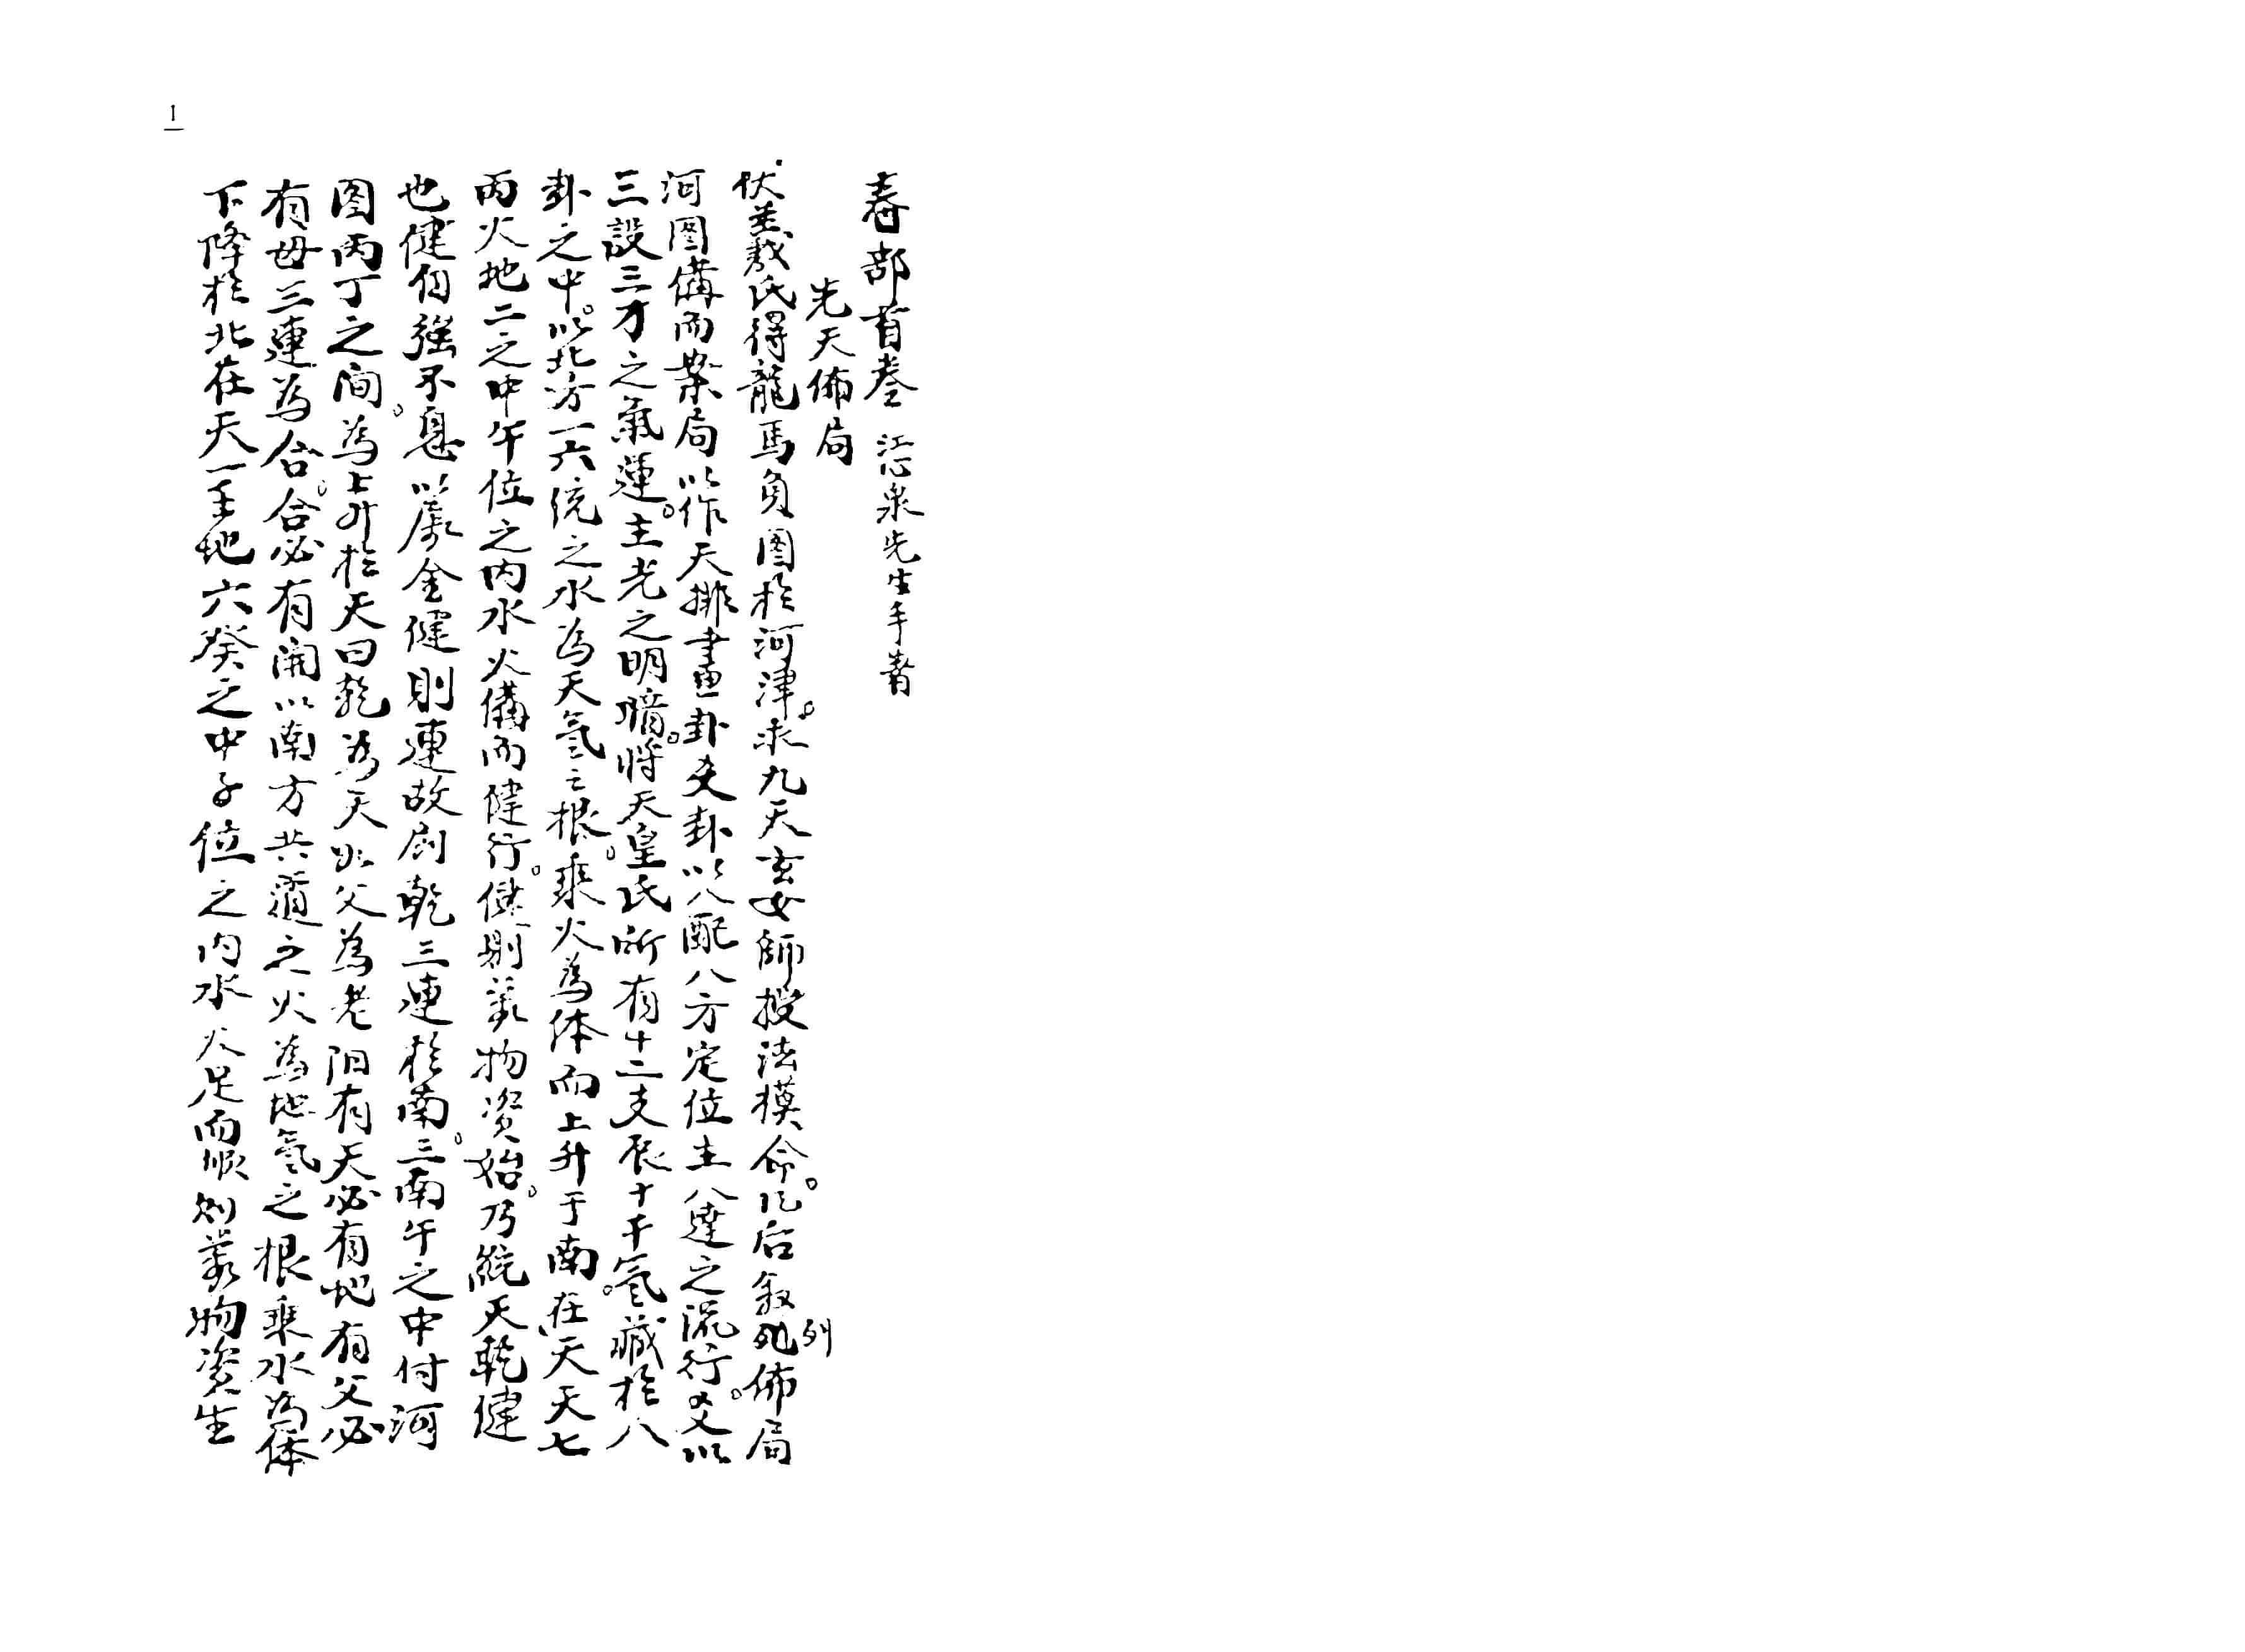 1
春部首卷 江心泉先生手著
先天佈局
伏羲氏得龍馬負图於河津。求九天玄女師授法模命。后叙列佈局
河图備而業局以作天排畫卦爻卦以八配八方定位主八達之流行。爻以
三設三才之氣運。主老之明暗。將天皇氏所有十二支辰十干氣藏於八
卦之中。以北方一六统之水為天氣之根。乘火為体而上升于南。在天天七
丙火地二之中午位之内水火備而健行。健則萬物资始。乃統天乾健
也健自强不息以属金健則連故刻乾三連於南。三南午之中付河
图丙丁之间。為上升於天曰乾為天比父為老阳有天必有地有父必
有母三連為合。合必有開以南方共道之火為地氣之根乘水為体
下降於北在天一壬地六癸之中子位之内水火足而順则萬物资生